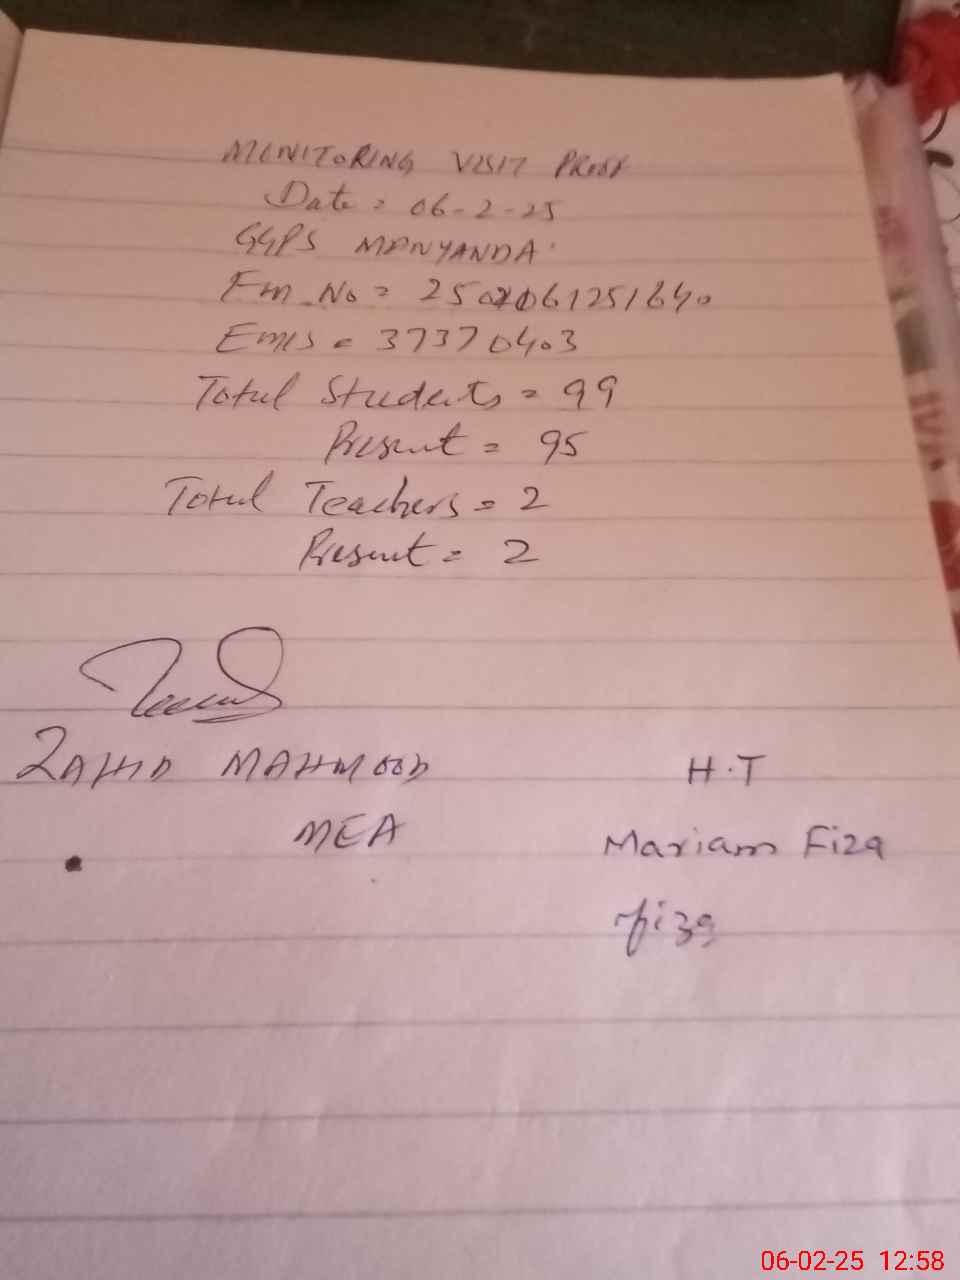 MONITORING VISIT PROOF
Date = 06-2-25
GGPS MANYANDA
Fm No = 2502061251640
Emis = 37370403
Total Students = 99
Present = 95
Total Teachers = 2
Present = 2
ZAHID MAHMOOD
MEA
H.T
Mariam Fiza
fiza
06-02-25 12:58